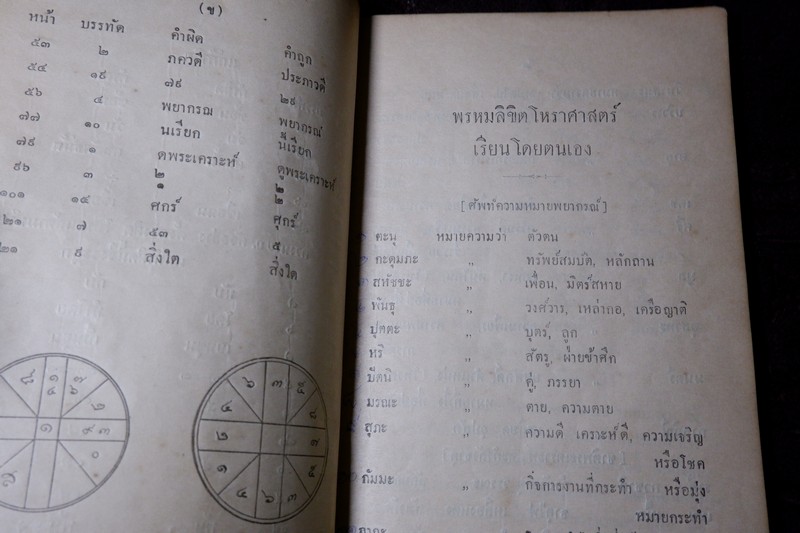 (ข)
หน้า บรรทัด คำผิด คำถูก
๕๓ ๒ ภควดี ประภารดี
๕๔ ๑๙ ๗๙ ๒๙
๕๖ ๔ พยากรณ พยากรณ์
๗๗ ๑๐ นเรียก นี้เรียก
๗๙ ๑ ดพระเคราะห์ ดูพระเคราะห์
๙๖ ๓ ๒ ๒
๑ ๒
๑๐๑ ๑๕ ศกร์ ศุกร์
๒๑ ๗ ๕๓ ๕
๒๑ ๙ สิ่งใต สิ่งใด
พรหมลิขิตโหราศาสตร์
เรียนโดยตนเอง
[ศัพท์ความหมายพยากรณ์]
ตะนุ หมายความว่า ตัวตน
กะดุมภะ " ทรัพย์สมบัติ, หลักฐาน
สหัชชะ " เพื่อน, มิตร์สหาย
พันธุ " วงศ์วาร, เหล่ากอ, เครือญาติ
ปุตตะ " บุตร์, ลูก
หริ " สัตรู, ฝ่ายข้าศึก
ปัตนิ " คู่, ภรรยา
มรณะ " ตาย, ความตาย
สุภะ " ความดี เคราะห์ดี, ความเจริญ
หรือโชค
กัมมะ " กิจการงานที่กระทำ หรือมุ่ง
หมายกระทำ